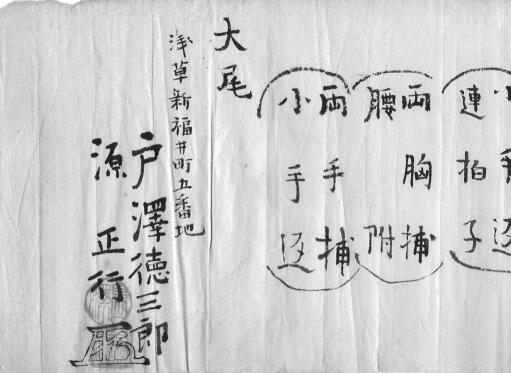 連拍子
両胸捕
腰附
両手捕
小手返
大尾
浅草新福井町五番地
戸澤徳三郎
源正行